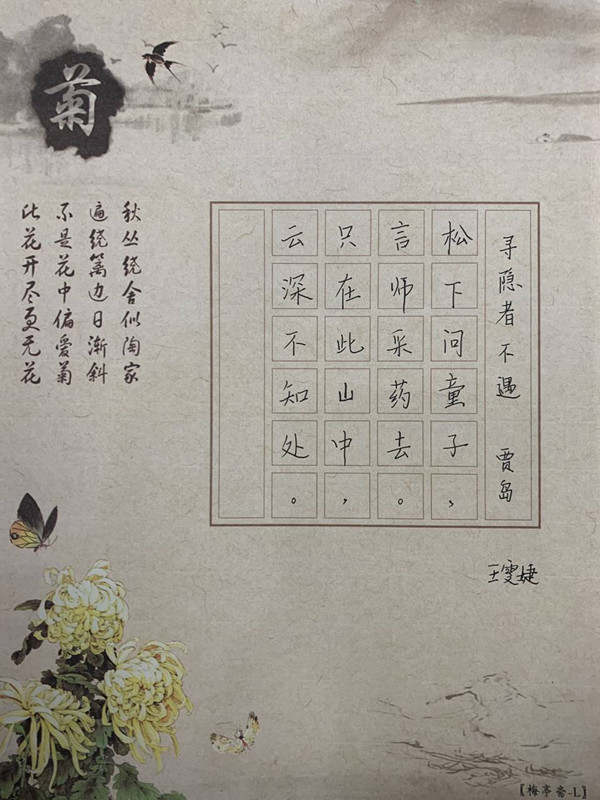 菊
寻隐者不遇 贾岛
松下问童子，
言师采药去。
只在此山中，
云深不知处。
王雯婕
秋丛绕舍似陶家
遍绕篱边日渐斜
不是花中偏爱菊
此花开尽更无花
【梅亭斋-L】